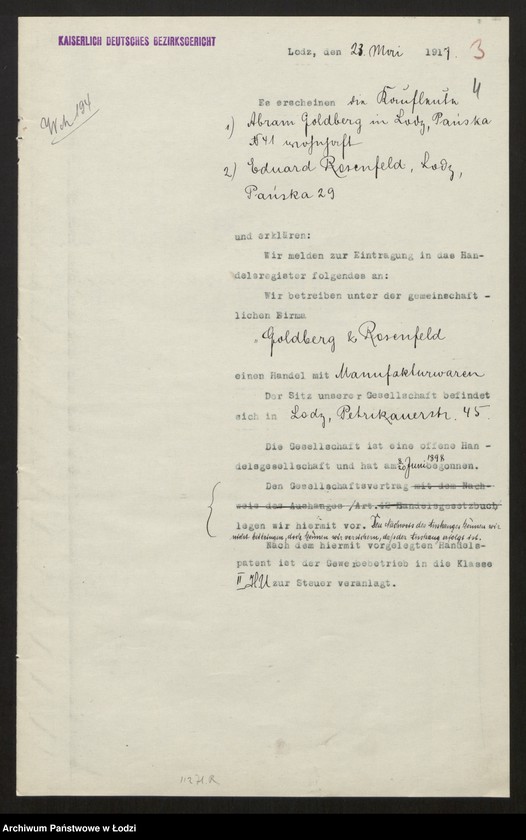 KAISERLICH DEUTSCHES BEZIRKSGERICHT
Lodz, den 23. Mai 1917. 3
4
Es erscheinen die Kaufleute
1) Abram Goldberg in Lodz, Pańska
№ 41 wohnhaft
2) Eduard Rosenfeld, Lodz,
Pańska 29
und erklären:
Wir melden zur Eintragung in das Han-
delsregister folgendes an:
Wir betreiben unter der gemeinschaft -
lichen Firma
"Goldberg & Rosenfeld
einen Handel mit Manufakturwaren
Der Sitz unserer Gesellschaft befindet
sich in Lodz, Petrikauerstr. 45.
Die Gesellschaft ist eine offene Han -
delsgesellschaft und hat am 8/20 Juni 1898 begonnen.
Den Gesellschaftsvertrag mit dem Nach-
weis des Aushanges /Art.48 Handelsgesetzbuch/
legen wir hiermit vor. Den Nachweis des Aushanges können wir
nicht beibringen, doch können wir versichern, daß der Aushang erfolgt ist.
Nach dem hiermit vorgelegten Handels-
patent ist der Gewerbebetrieb in die Klasse
II HU zur Steuer veranlagt.
Archiwum Państwowe w Łodzi